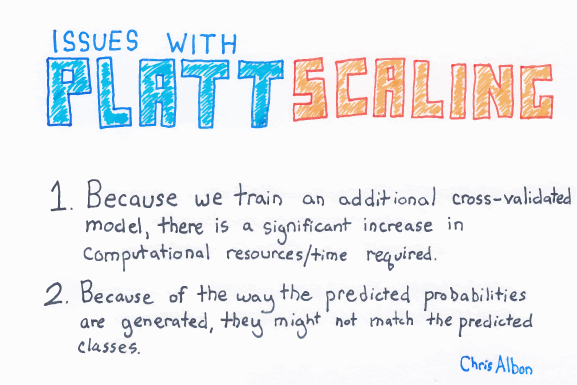 ISSUES WITH
PLATT SCALING
1. Because we train an additional cross-validated
model, there is a significant increase in
computational resources/time required.
2. Because of the way the predicted probabilities
are generated, they might not match the predicted
classes.
Chris Albon